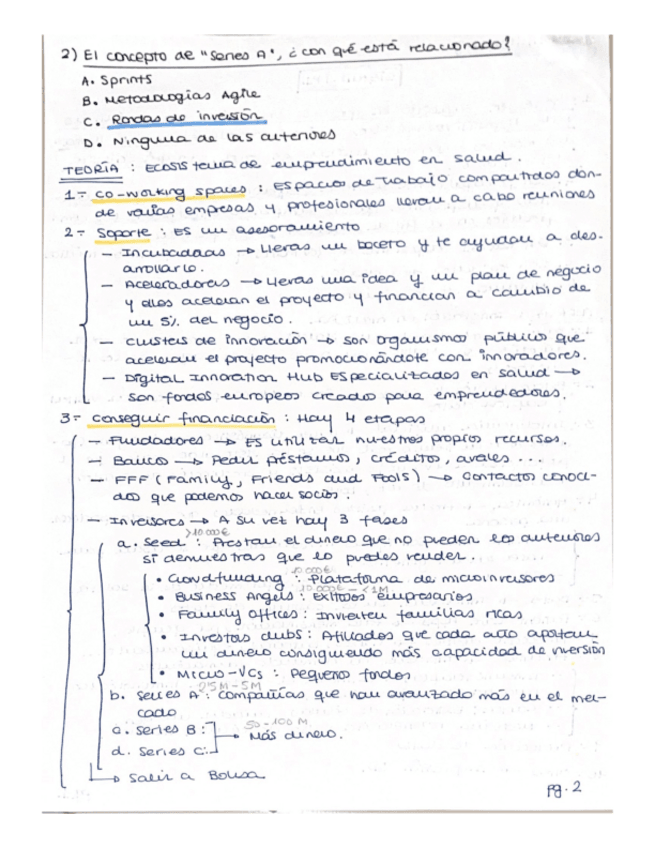 2) El concepto de "Series A", ¿con qué está relacionado?
A. Sprints
B. Metodologías Agile
C. Rondas de inversión
D. Ninguna de las anteriores
TEORÍA : Ecosistema de emprendimiento en salud.
1- Co-working spaces : Espacios de trabajo compartidos don-
de varias empresas y profesionales llevan a cabo reuniones
2- Soporte : Es un asesoramiento
- Incubadoras → Llevas un boceto y te ayudan a des-
arrollarlo.
- Aceleradoras → Llevas una idea y un plan de negocio
y ellos aceleran el proyecto y financian a cambio de
un 5% del negocio.
- Clusters de innovación → son organismos públicos que
aceleran el proyecto promocionándote con innovadores.
- Digital Innovation Hub Especializados en Salud →
son fondos europeos creados para emprendedores.
3- Conseguir financiación : Hay 4 etapas
- Fundadores → Es utilizar nuestros propios recursos.
- Banco → Pedir préstamos, créditos, avales ...
- FFF (Family, Friends and Fools) → Contactos conoci-
dos que podemos hacer socios.
- Inversores → A su vez hay 3 fases
>10000€
a. Seed : Prestan el dinero que no pueden los anteriores
si demuestras que lo puedes vender.
10.000€
• Crowdfunding : Plataforma de microinversores
10.000€ - <1M
• Business Angels : Exitosos empresarios
• Family offices : Invierten familias ricas
• Investors clubs : Afiliados que cada año aportan
un dinero consiguiendo más capacidad de inversión
• Micro-VCs : Pequeños fondos
b. Series A : Compañías que han avanzado más en el mer-
cado
c. Series B : → Más dinero.
50-100 M
d. Series C:
→ Salir a Bolsa
Pg. 2